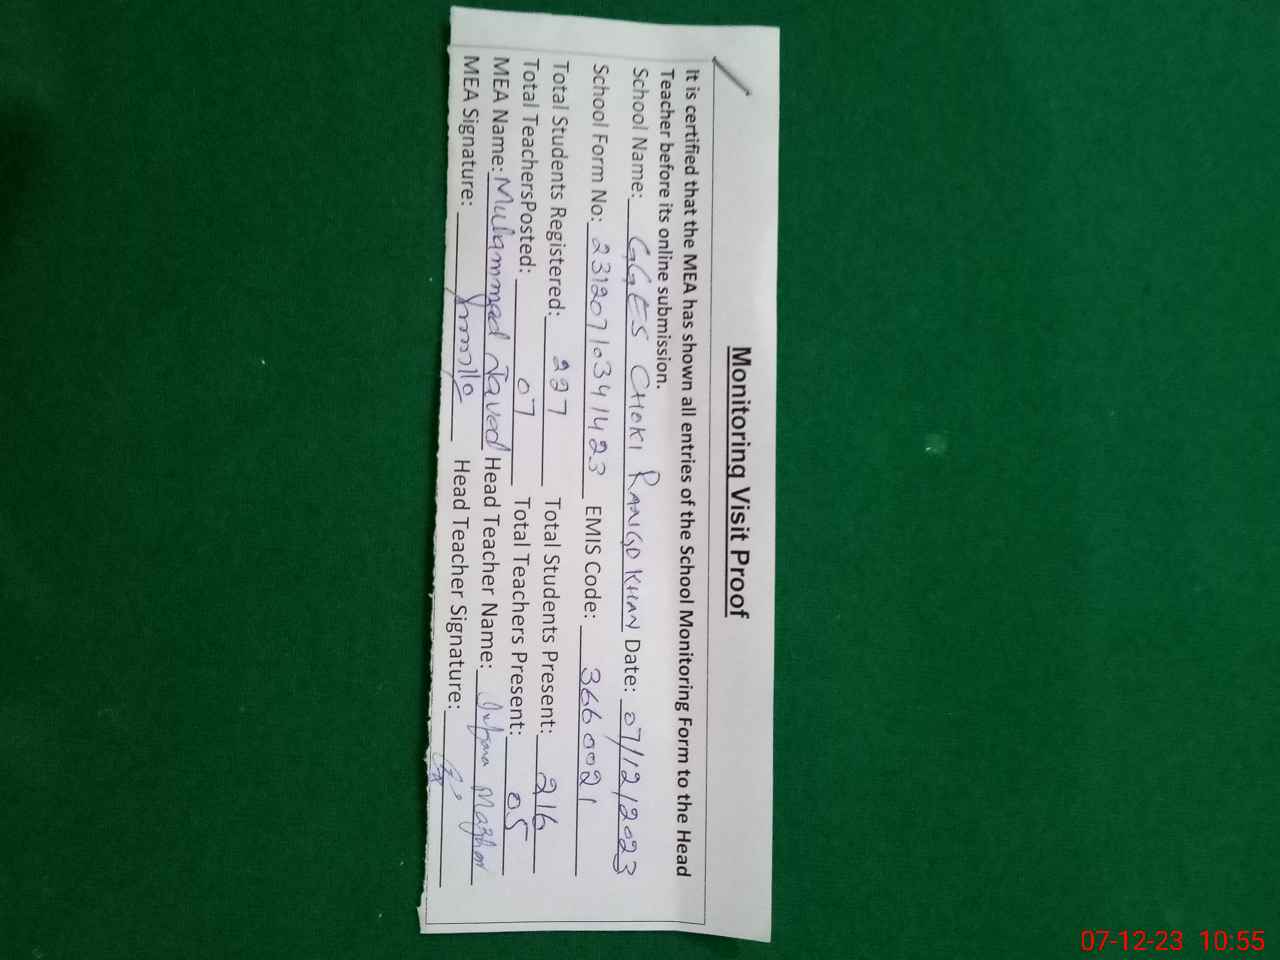 Monitoring Visit Proof
It is certified that the MEA has shown all entries of the School Monitoring Form to the Head
Teacher before its online submission.
School Name: GGES CHOKI RANGO KHAN Date: 07/12/2023
School Form No: 23120710341423 EMIS Code: 36660021
Total Students Registered: 227 Total Students Present: 216
Total TeachersPosted: 07 Total Teachers Present: 05
MEA Name: Muhammad Javed Head Teacher Name: Mazhar
MEA Signature: Head Teacher Signature:
07-12-23 10:55